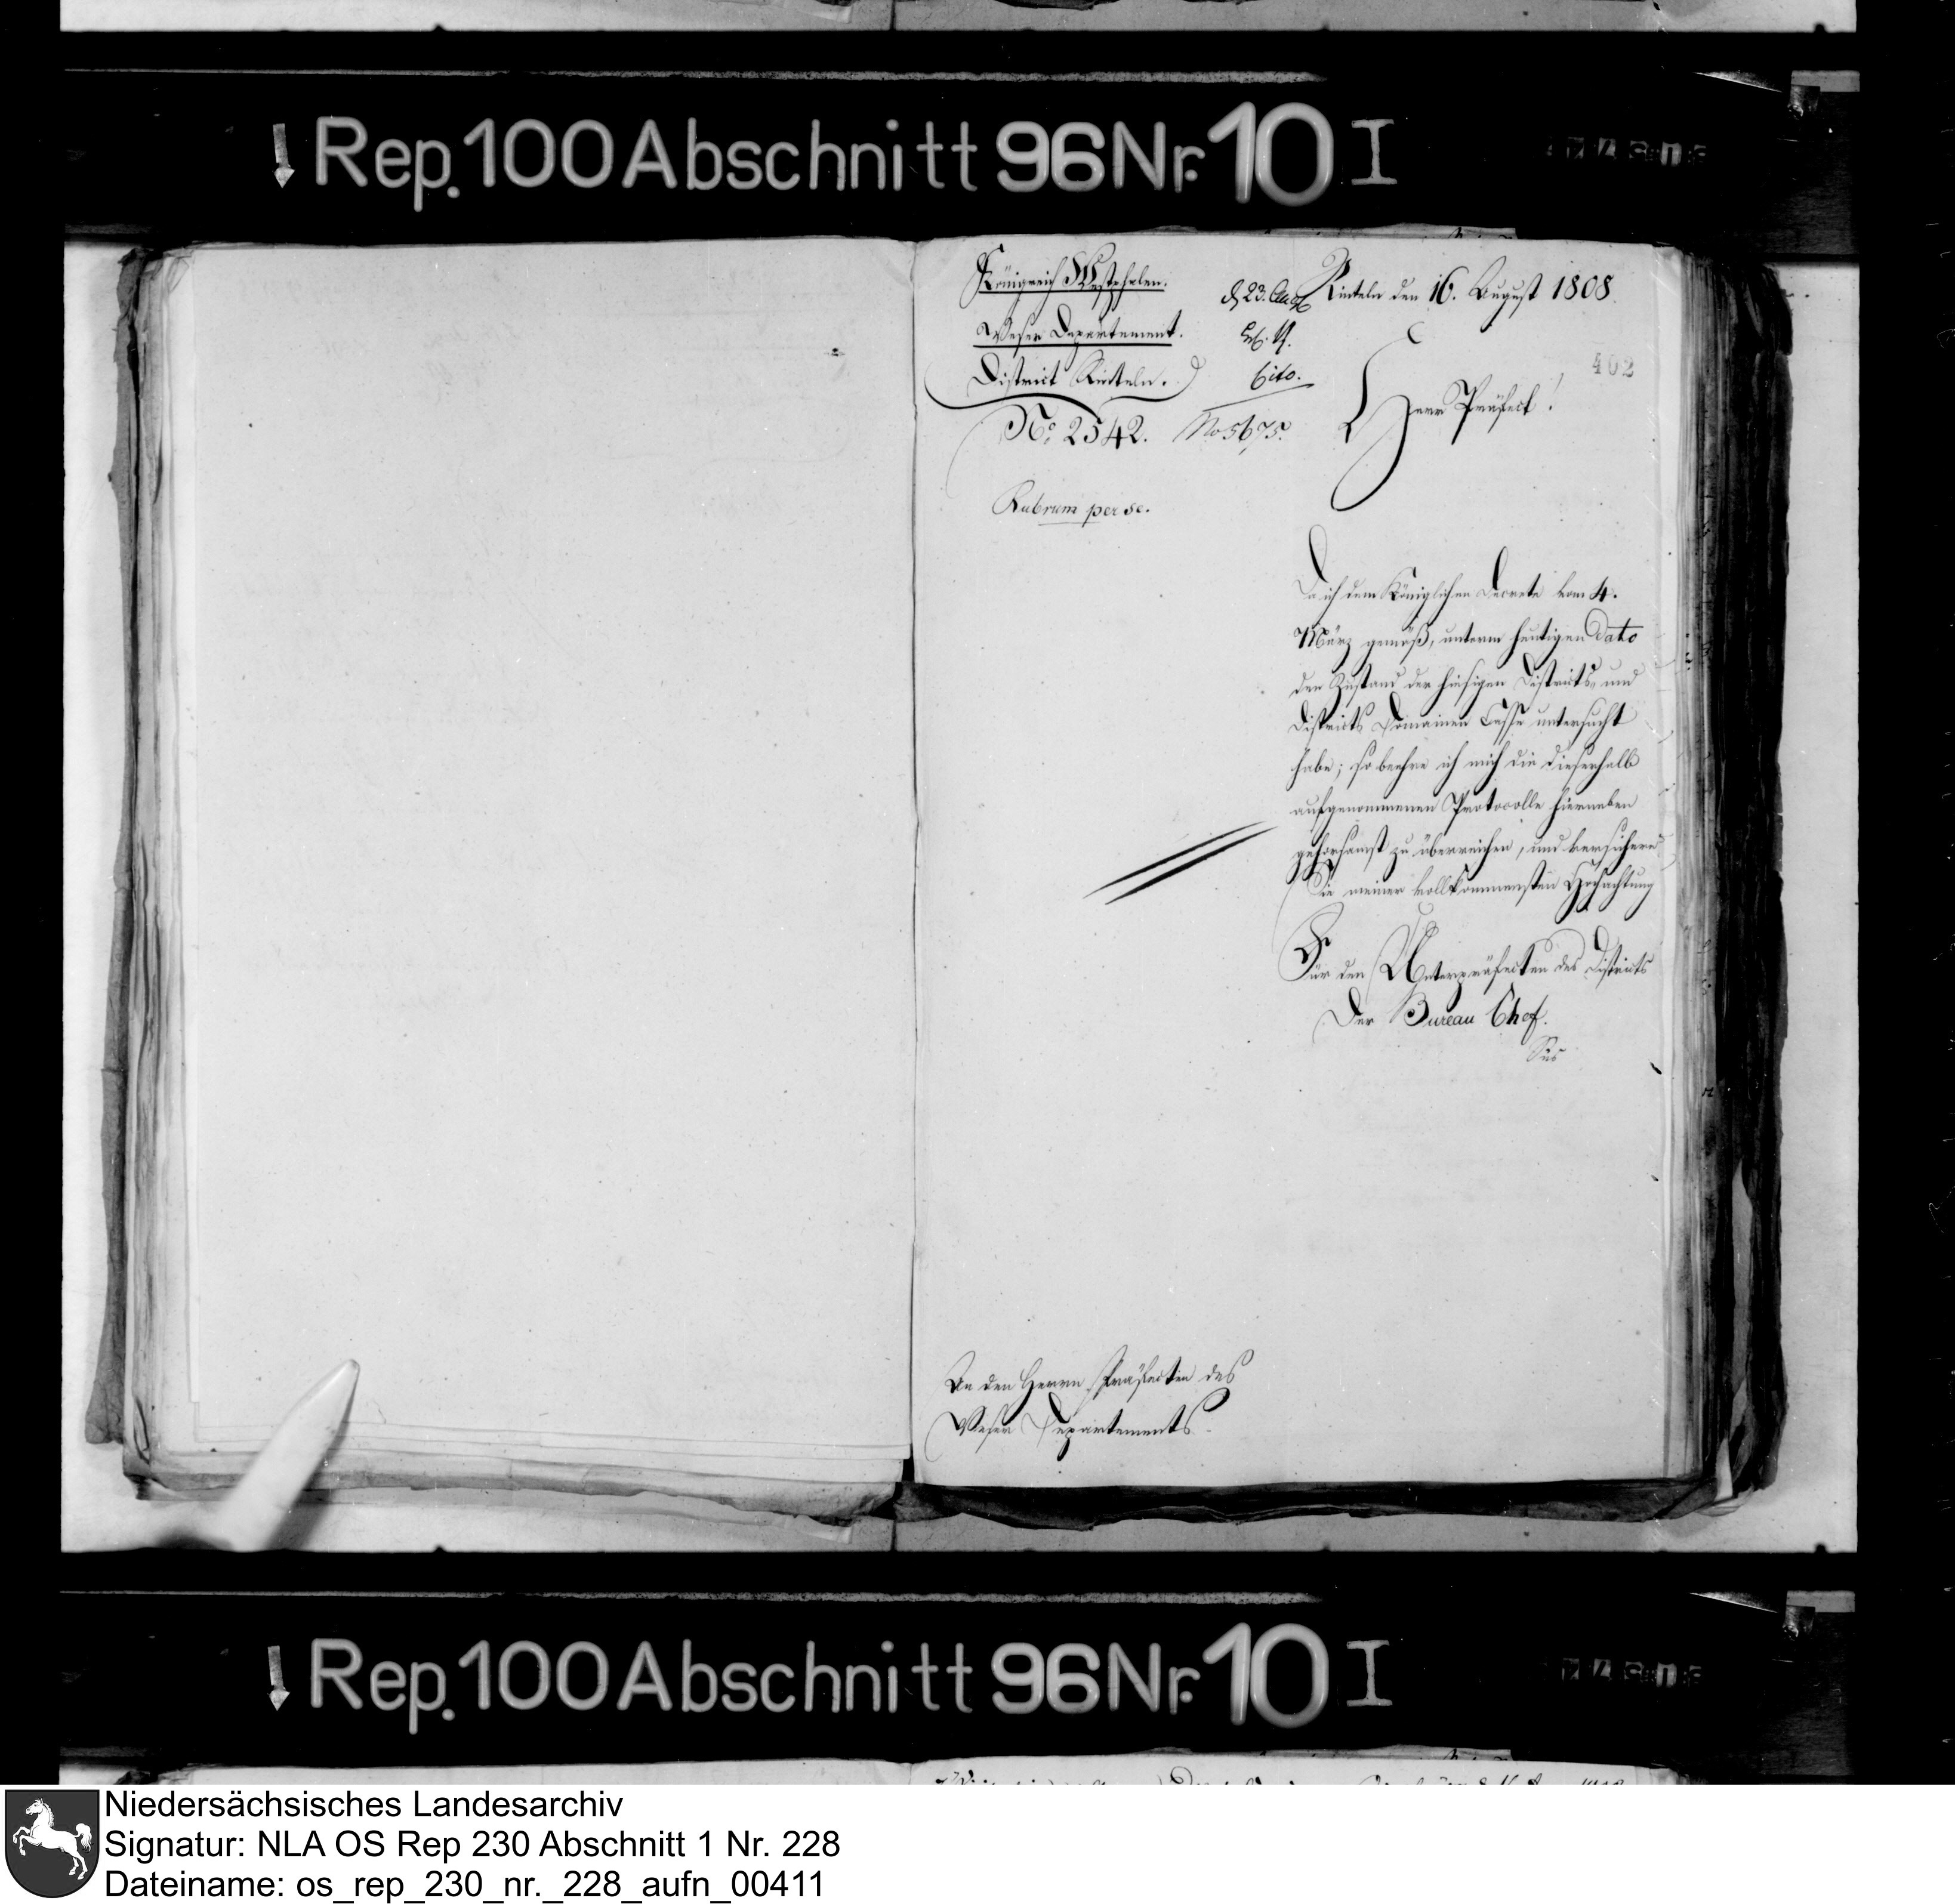 Rep. 100 Abschnitt 96 Nr. 10 I
Königreich Westphalen.
Weser Departement.
District Rinteln.
No. 2542.
d 23. Aug
Cito.
No 5675.
Rinteln den 16. August 1808
402
Herr Präfect!
Rubrum per se.
Da ich dem Königlichen Decrete vom 4.
März gemäß, unterm heutigen Dato
den Zustand der hiesigen Districts, und
Districts Domainen Casse untersucht
habe; so beehre ich mich die dieserhalb
aufgenommenen Protocolle hierneben
gehorsamst zu überreichen, und versichere
Sie meiner vollkommensten Hochachtung
Für den Unterpräfecten des Districts
Der Bureau Chef.
An den Herrn Präfecten des
Weser Departements.
Rep. 100 Abschnitt 96 Nr. 10 I
Niedersächsisches Landesarchiv
Signatur: NLA OS Rep 230 Abschnitt 1 Nr. 228
Dateiname: os_rep_230_nr._228_aufn_00411